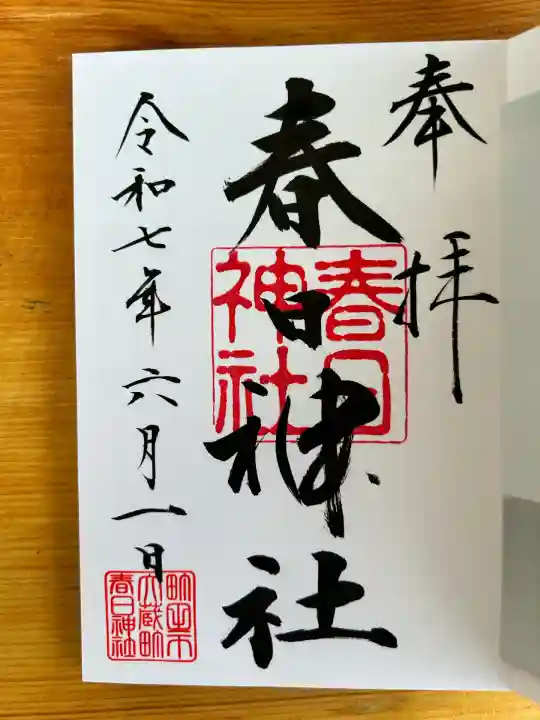 奉拝
春日神社
春日
神社
令和七年六月一日
町田市
大蔵町
春日神社